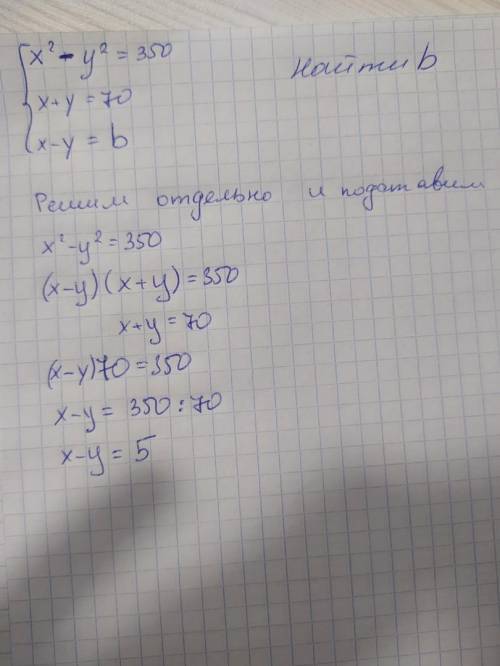 x² - y² = 350
Найти b
x+y = 70
x-y = b
Решим отдельно и подставим
x² - y² = 350
(x-y)(x+y) = 350
x+y = 70
(x-y)70 = 350
x-y = 350 : 70
x-y = 5